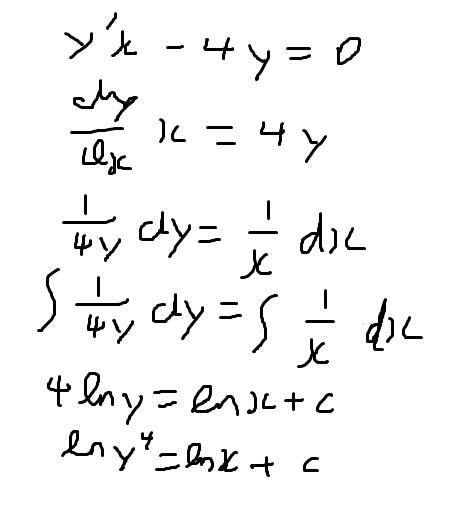 y'x - 4y = 0
dy/dx x = 4y
1/4y dy = 1/x dx
∫ 1/4y dy = ∫ 1/x dx
4 ln y = ln x + c
ln y⁴ = ln x + c